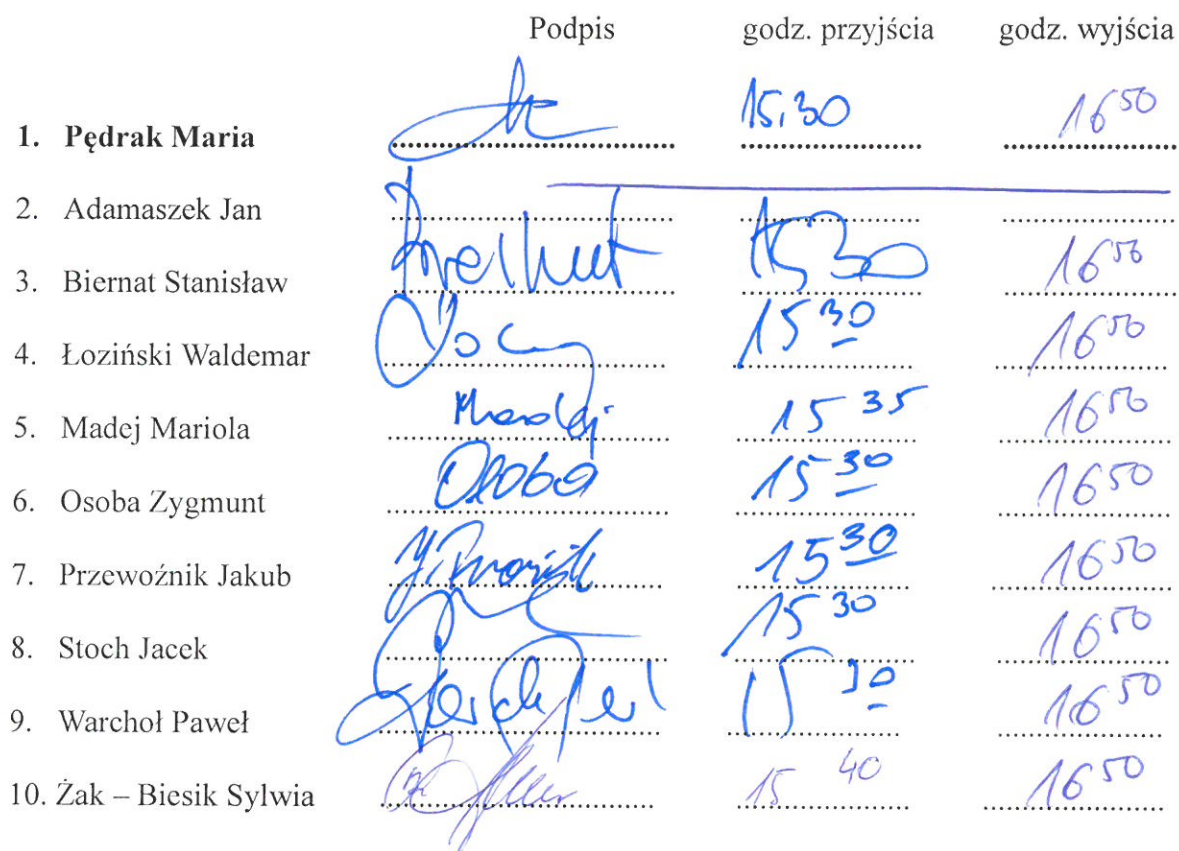 Podpis godz. przyjścia godz. wyjścia
1. Pędrak Maria 15,30 16 50
2. Adamaszek Jan
3. Biernat Stanisław 15 30 16 50
4. Łoziński Waldemar 15 30 16 50
5. Madej Mariola Madej 15 35 16 50
6. Osoba Zygmunt Osoba 15 30 16 50
7. Przewoźnik Jakub 15 30 16 50
8. Stoch Jacek 15 30 16 50
9. Warchoł Paweł 15 30 16 50
10. Żak – Biesik Sylwia 15 40 16 50